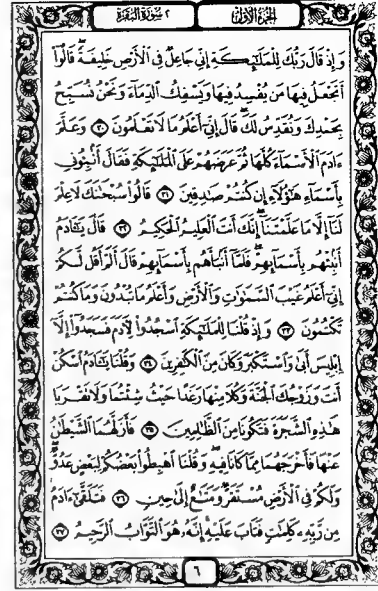 الجزء الأول
٢ سورة البقرة
وَإِذْ قَالَ رَبُّكَ لِلْمَلَٰٓئِكَةِ إِنِّي جَاعِلٌ فِي ٱلْأَرْضِ خَلِيفَةً ۖ قَالُوٓا۟
أَتَجْعَلُ فِيهَا مَن يُفْسِدُ فِيهَا وَيَسْفِكُ ٱلدِّمَآءَ وَنَحْنُ نُسَبِّحُ
بِحَمْدِكَ وَنُقَدِّسُ لَكَ ۖ قَالَ إِنِّيٓ أَعْلَمُ مَا لَا تَعْلَمُونَ ٣٠ وَعَلَّمَ
ءَادَمَ ٱلْأَسْمَآءَ كُلَّهَا ثُمَّ عَرَضَهُمْ عَلَى ٱلْمَلَٰٓئِكَةِ فَقَالَ أَنۢبِـُٔونِي
بِأَسْمَآءِ هَٰٓؤُلَآءِ إِن كُنتُمْ صَٰدِقِينَ ٣١ قَالُوا۟ سُبْحَٰنَكَ لَا عِلْمَ
لَنَآ إِلَّا مَا عَلَّمْتَنَآ ۖ إِنَّكَ أَنتَ ٱلْعَلِيمُ ٱلْحَكِيمُ ٣٢ قَالَ يَٰٓـَٔادَمُ
أَنۢبِئْهُم بِأَسْمَآئِهِمْ ۖ فَلَمَّآ أَنۢبَأَهُم بِأَسْمَآئِهِمْ قَالَ أَلَمْ أَقُل لَّكُمْ
إِنِّيٓ أَعْلَمُ غَيْبَ ٱلسَّمَٰوَٰتِ وَٱلْأَرْضِ وَأَعْلَمُ مَا تُبْدُونَ وَمَا كُنتُمْ
تَكْتُمُونَ ٣٣ وَإِذْ قُلْنَا لِلْمَلَٰٓئِكَةِ ٱسْجُدُوا۟ لِءَادَمَ فَسَجَدُوٓا۟ إِلَّآ
إِبْلِيسَ أَبَىٰ وَٱسْتَكْبَرَ وَكَانَ مِنَ ٱلْكَٰفِرِينَ ٣٤ وَقُلْنَا يَٰٓـَٔادَمُ ٱسْكُنْ
أَنتَ وَزَوْجُكَ ٱلْجَنَّةَ وَكُلَا مِنْهَا رَغَدًا حَيْثُ شِئْتُمَا وَلَا تَقْرَبَا
هَٰذِهِ ٱلشَّجَرَةَ فَتَكُونَا مِنَ ٱلظَّٰلِمِينَ ٣٥ فَأَزَلَّهُمَا ٱلشَّيْطَٰنُ
عَنْهَا فَأَخْرَجَهُمَا مِمَّا كَانَا فِيهِ ۖ وَقُلْنَا ٱهْبِطُوا۟ بَعْضُكُمْ لِبَعْضٍ عَدُوٌّ ۖ
وَلَكُمْ فِي ٱلْأَرْضِ مُسْتَقَرٌّ وَمَتَٰعٌ إِلَىٰ حِينٍ ٣٦ فَتَلَقَّىٰٓ ءَادَمُ
مِن رَّبِّهِۦ كَلِمَٰتٍ فَتَابَ عَلَيْهِ ۚ إِنَّهُۥ هُوَ ٱلتَّوَّابُ ٱلرَّحِيمُ ٣٧
٦